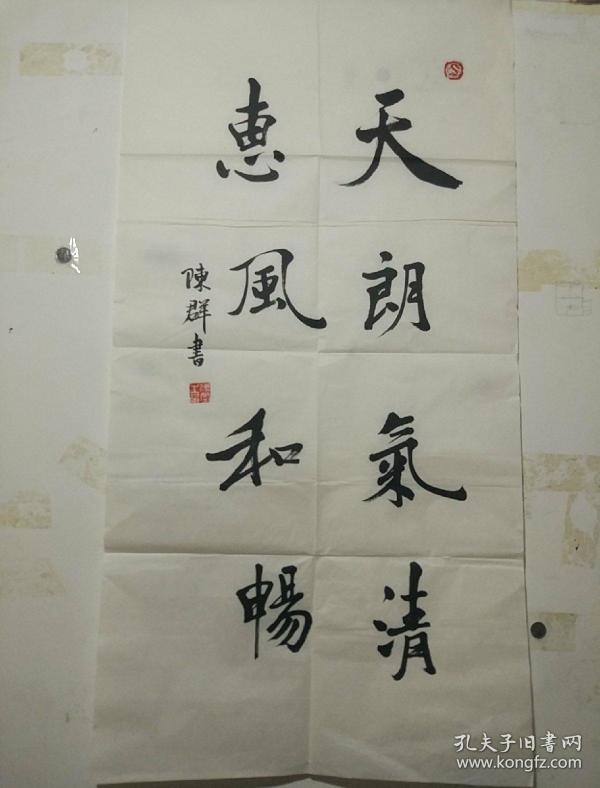 天朗氣清
惠風和暢
陳群書
孔夫子旧書网
www.kongfz.com